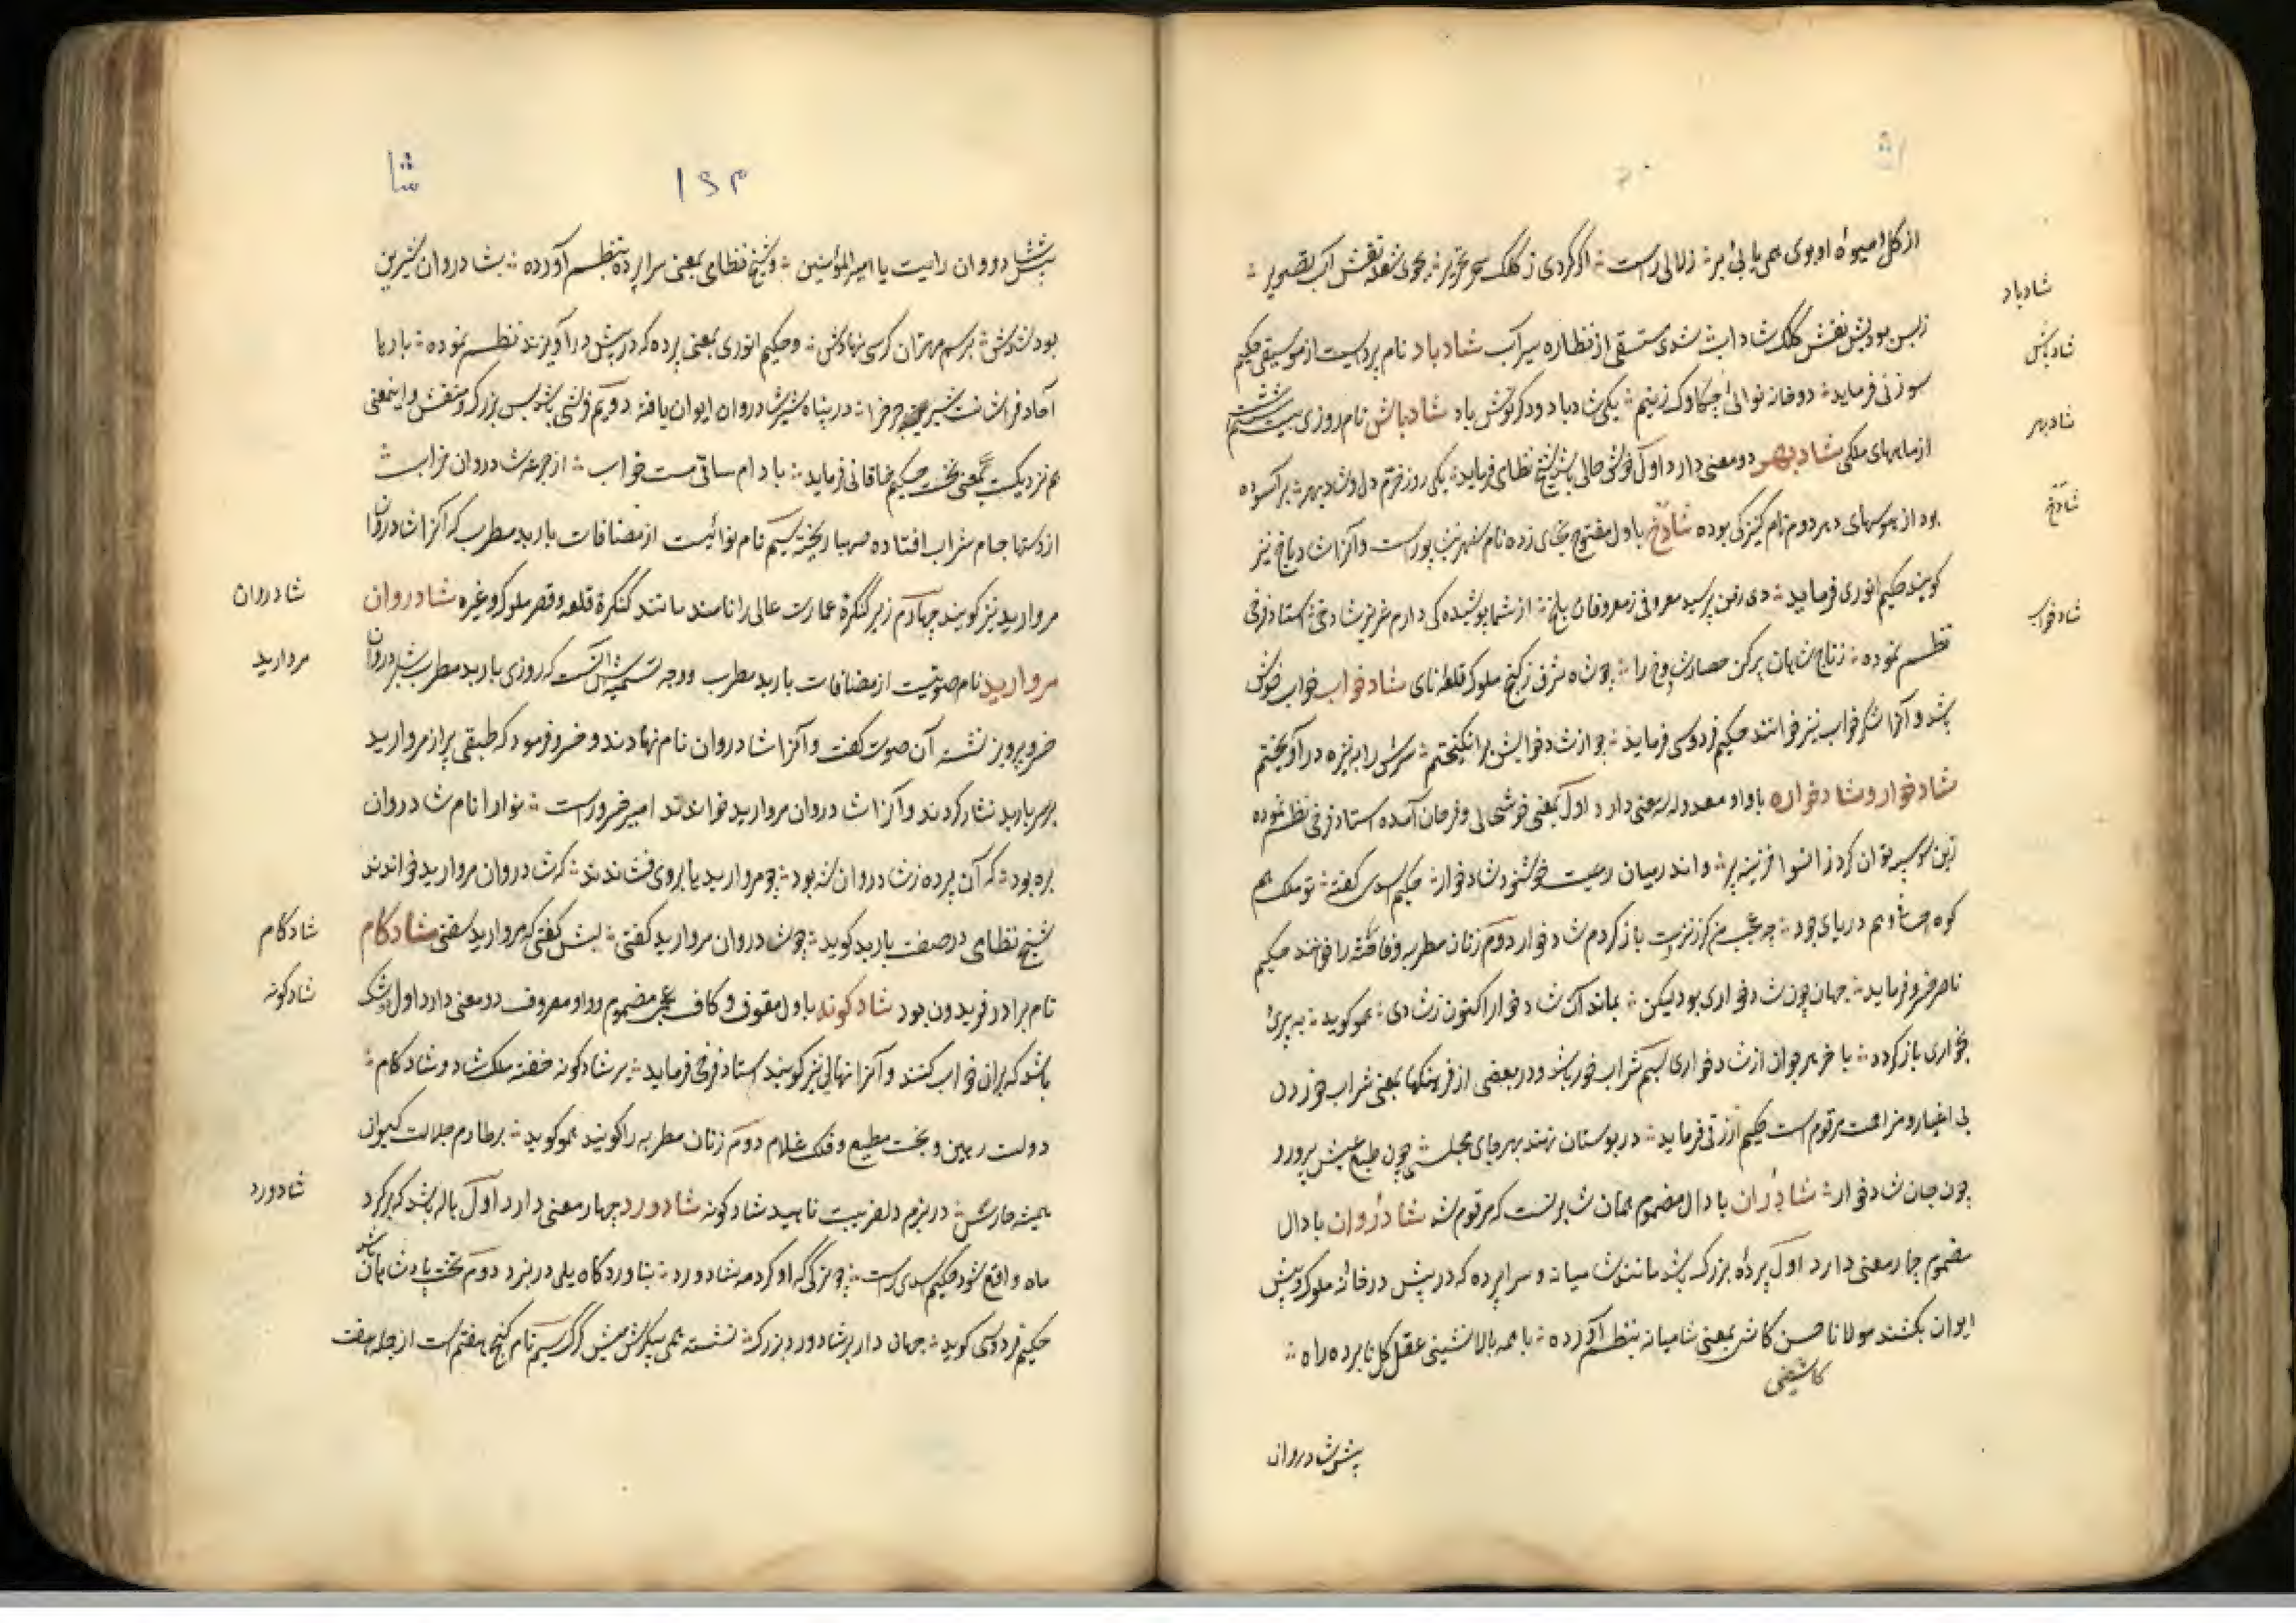 از کل امیوهٔ او بوی همی یابی ببر زلالی راست اگر کردی ز کلک سحر تحریر نقش آب تصویر
ز بس بودیش نقش کلک شاداب شدی مستسقی از نظاره سیرآب شادباد نام پرده‌ایست از موسیقی حکیم
شادباد
سوزنی فرماید دو خانه نوائی چکاوک زنیم یکی شادباد و دکر نوش باد شادباش نام روزی بیست ششم
شادباش
از ماههای ملکی شادبهر دو معنی دارد اول خوش حالی باشد شیخ نظامی فرماید یکی روز خرم دل و شادبهر بر آسوده
شادبهر
بود از هوسهای دهر دوم نام کنیزکی بوده شادخ باول مفتوح بخای زده نام شهر نیشاپور است و آنرا شادیاخ نیز
شادخ
کویند حکیم انوری فرماید دی ز من پرسید معروفی ز معروفان بلخ از شما پوشیده کی دارم عزیز شادخی استاد فرخی
نظم نموده ز تاج شاهان پر کن حصار شادخ را چو شاه شرق ز کنج ملوک قلعه نای شادخواب خواب خوش
شادخواب
باشد و آنرا شکرخواب نیز خوانند حکیم فردوسی فرماید چو از شادخوابش برانکیختم سرش را به نیزه درآویختم
شادخوار و شادخواره با واو معدوله سه معنی دارد اول بمعنی خوشحالی و فرحان آمده استاد فرخی نظم نموده
خزینه پر و اندر میان رعیت خوشنود شادخوار حکیم اسدی کفته تو ملک هم
کوه و هم دریای جود چه عجب من کر ز نزدت باز کردم شادخوار دوم زنان مطربه و فاحشه را خوانند حکیم
ناصرخسرو فرماید جهان چون شادخواری بود لیکن بماند آن شادخوار اکنون ز شادی هموکوید به پیری
بخواری باز کردد با خر هر جوان از شادخواری سیم شراب خور باشد و در بعضی از فرهنکها بمعنی شراب خوردن
بی اغیار و مزاحمت مرقوم است حکیم ازرقی فرماید در بوستان نهند بهر جای مجلسی چون طبع عیش پرور و
چون جان شادخوار شادران با دال مضموم همان شاد است که مرقوم شد شادروان با دال
مضموم چار معنی دارد اول پردهٔ بزرک باشد مانند شامیانه و سراپرده که در پیش در خانه ملوک و پیش
ایوان بکشند مولانا حسن کاشی بمعنی شامیانه بنظم آورده با همه بالانشینی عقل کل نابرده راه
کاشفی
پیش شادروان
شا
۱۶۳
پیش شادروان رایت یا امیرالمؤمنین و شیخ نظامی بمعنی سراپرده بنظم آورده بشادروان شیرین
بود شدش برسم مهتران کرسی نهادش و حکیم انوری بمعنی پرده که در پیش در آویزند نظم نموده بار با
آحاد فراشانت شیر چرخ را در پناه شیر شادروان ایوان یافته دویم فرشی باشد بس بزرک و منقش و اینمعنی
هم نزدیکست بمعنی نخست حکیم خاقانی فرماید بادام ساقی مست خواب از جرعه شادروان خراب
از دستها جام شراب افتاده صهبا ریخته سیم نام نوائیست از مصنفات باربد مطرب که آنرا شادروان
مروارید نیز کویند چهارم زیر کنکرهٔ عمارت عالی را نامند مانند کنکرهٔ قلعه و قصر ملوک و غیره شادروان
شادروان
مروارید نام صوتیست از مصنفات باربد مطرب و وجه تسمیه‌اش آنست که روزی باربد مطرب بشادروان
مروارید
خسرو پرویز نشسته آن صوت کفت و آنرا شادروان نام نهادند و خسرو فرمود که طبقی پر از مروارید
بر سر باربد نثار کردند و آنرا شادروان مروارید خواندند امیرخسرو راست نوارا نام شادروان
بره بود که آن پرده ز شادروان شه بود چو مروارید با بروی فشاندند که شادروان مروارید خواندند
شیخ نظامی در صفت باربد کوید چو شادروان مروارید کفتی لبش کفتی که مروارید سفتی شادکام
شادکام
نام برادر فریدون بود شادکونه باول موقوف و کاف عجمی مضموم و واو معروف دو معنی دارد اول توشک
شادکونه
باشد که بران خواب کنند و آنرا نهالی نیز کویند استاد فرخی فرماید بر شادکونه خفته ملک شاد و شادکام
دولت رهین و بخت مطیع و فلک غلام دوم زنان مطربه را کویند هموکوید بر طارم جلالت کیوان
همیشه حارس در بزم دلفریبت ناهید شادکونه شادورد چهار معنی دارد اول هاله باشد که بر کرد
شادورد
ماه واقع شود حکیم اسدی راست چو خرکی که او کرد مه شادورد باشد دوم تخت پادشاهان
حکیم فردوسی کوید جهان دار بر شادورد بزرک نشسته همی پیکرش میش کرک سیم نام کنج هفتم است از جمله هفت